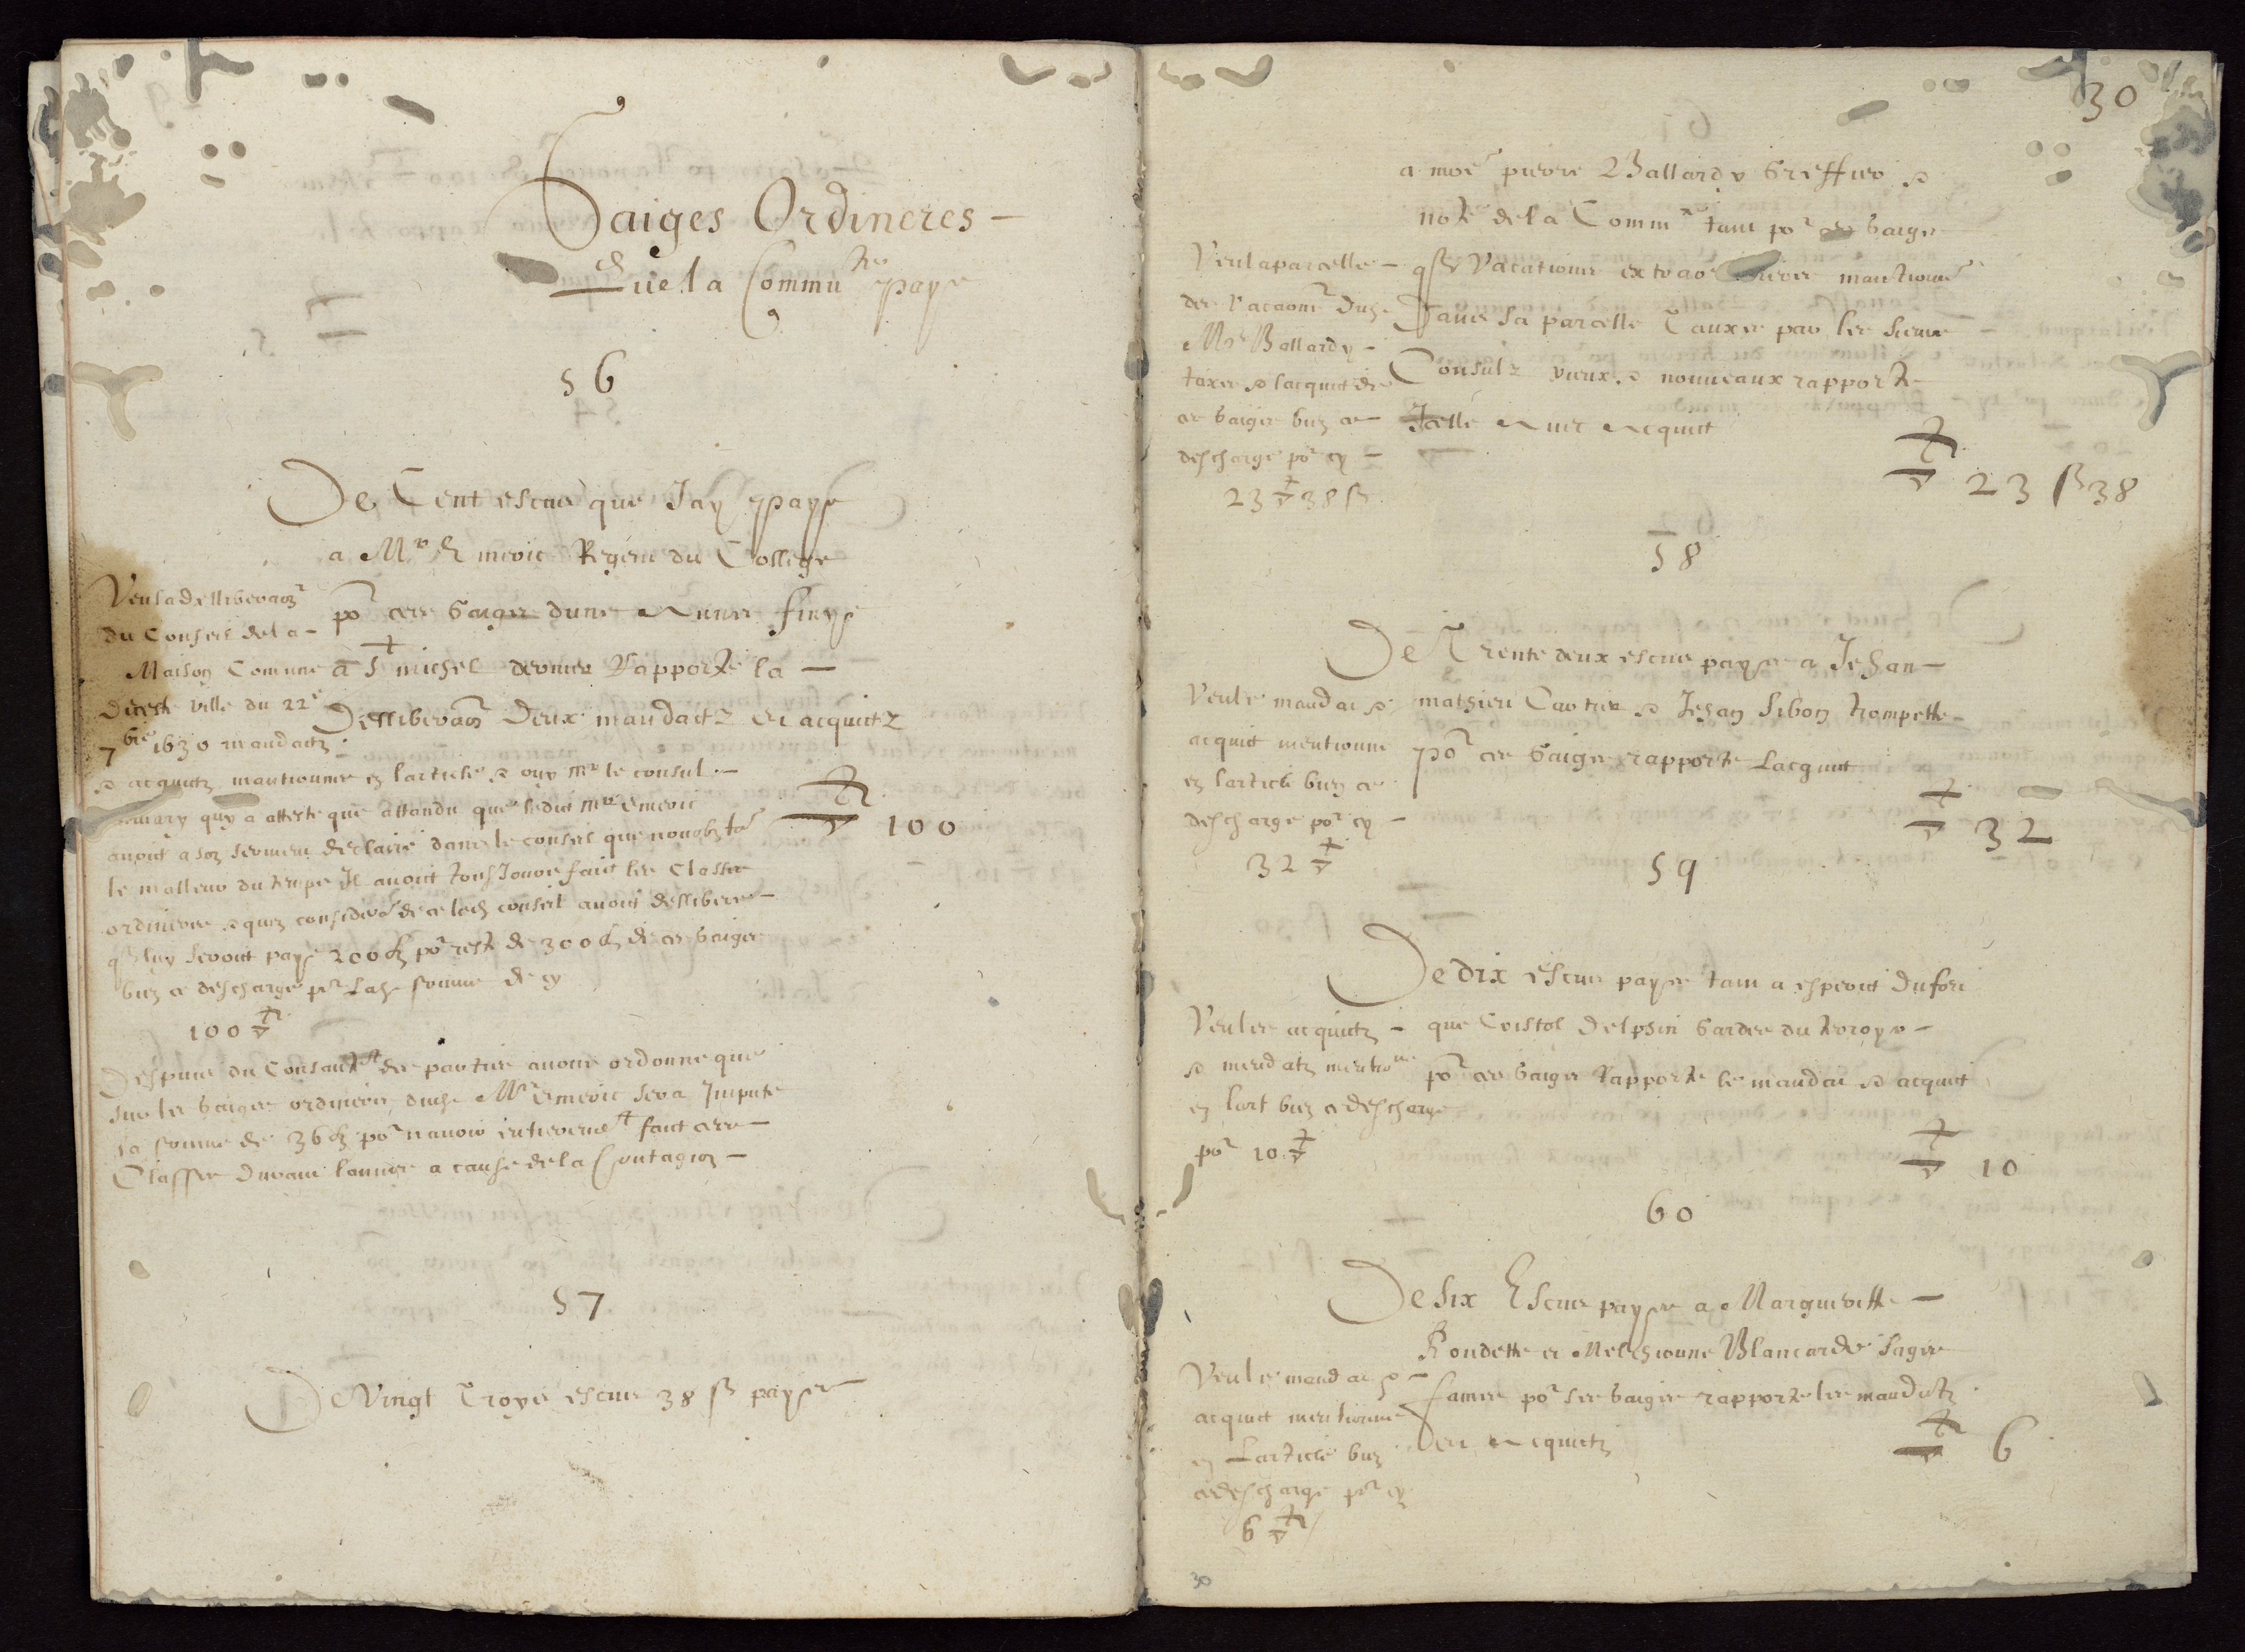 Gaiges Ordineres -
Que la Commu.te paye
56
De Cent escus que Jay paye
a Mr Emeric Regent du College
po.r ces Gaiges dune Annee finye
a St michel dernier Rapporte la -
Dellibera.on Deux mandactz et acquictz
100
Veu la dellibera.on
du Conseil de la -
Maison Comune
de ceste ville du 22e
7bre 1630 mandactz
et acquictz mantionnes en larticle et ouy Mr le consul -
quy a atteste que attandu que ledict Mr Emeric
avoict a son serment declaire dans le conseil que nonobsta.t
le malleur du temps Il avoict tousjours faict les Classes
ordineres et quen considera.on de ce led. conseil avoict dellibere -
q luy seroict paye 200 po.r reste de 300 de ces Gaiges
bien ce descharge po.r lad. somme de cy
100
Despuis du Consante.t des parties avons ordonne que
sur les Gaiges ordineres dud. Mr Emeric sera Impute
la somme de 36 po.r navoir entierem.t faict ces -
Classes durant lannee a cause de la Contagion -
57
De Vingt Troys escus 38 s payes
30
a moe pierre Ballardy Greffier et
note de la Comm.te tant po.r ces Gaiges
q vacations extraor mantionne
Dans sa parcelle Tauxee par les sieurs
Consulz vieux et nouveaux rapporte
Icelle Avec Acquict
23 s 38
Veu la parcelle -
des vacaons dud.
Mr Ballardy -
taxee et lacquict de
ces Gaiges bien ce
descharge po.r cy -
23 38 s
58
De Trente deux escus payes a Jehan -
mathieu Cartier et Jehan Sibon trompette -
po.r ces Gaiges rapporte Lacquict
32
Veu le mandat et
acquict mentionne
en larticle bien ce
descharge po.r cy -
32
59
De dix escus payes tant a esperit Dufort
que Cristol Delphin Gardes du terroyr -
po.r ces Gaiges Rapporte le mandat et acquict
10
Veu les acquictz -
et mendatz mentionnes
en lart bien ce descharge
po.r 10
60
De Six Escus payes a Margueritte -
Rondette et Melchionne Blancarde Sages
fames po.r ses Gaiges rapporte les mandatz
Deu Acquictz
6
Veu le mandat et -
acquict mentionne
en Larticle bien
ce descharge po.r cy
6
30